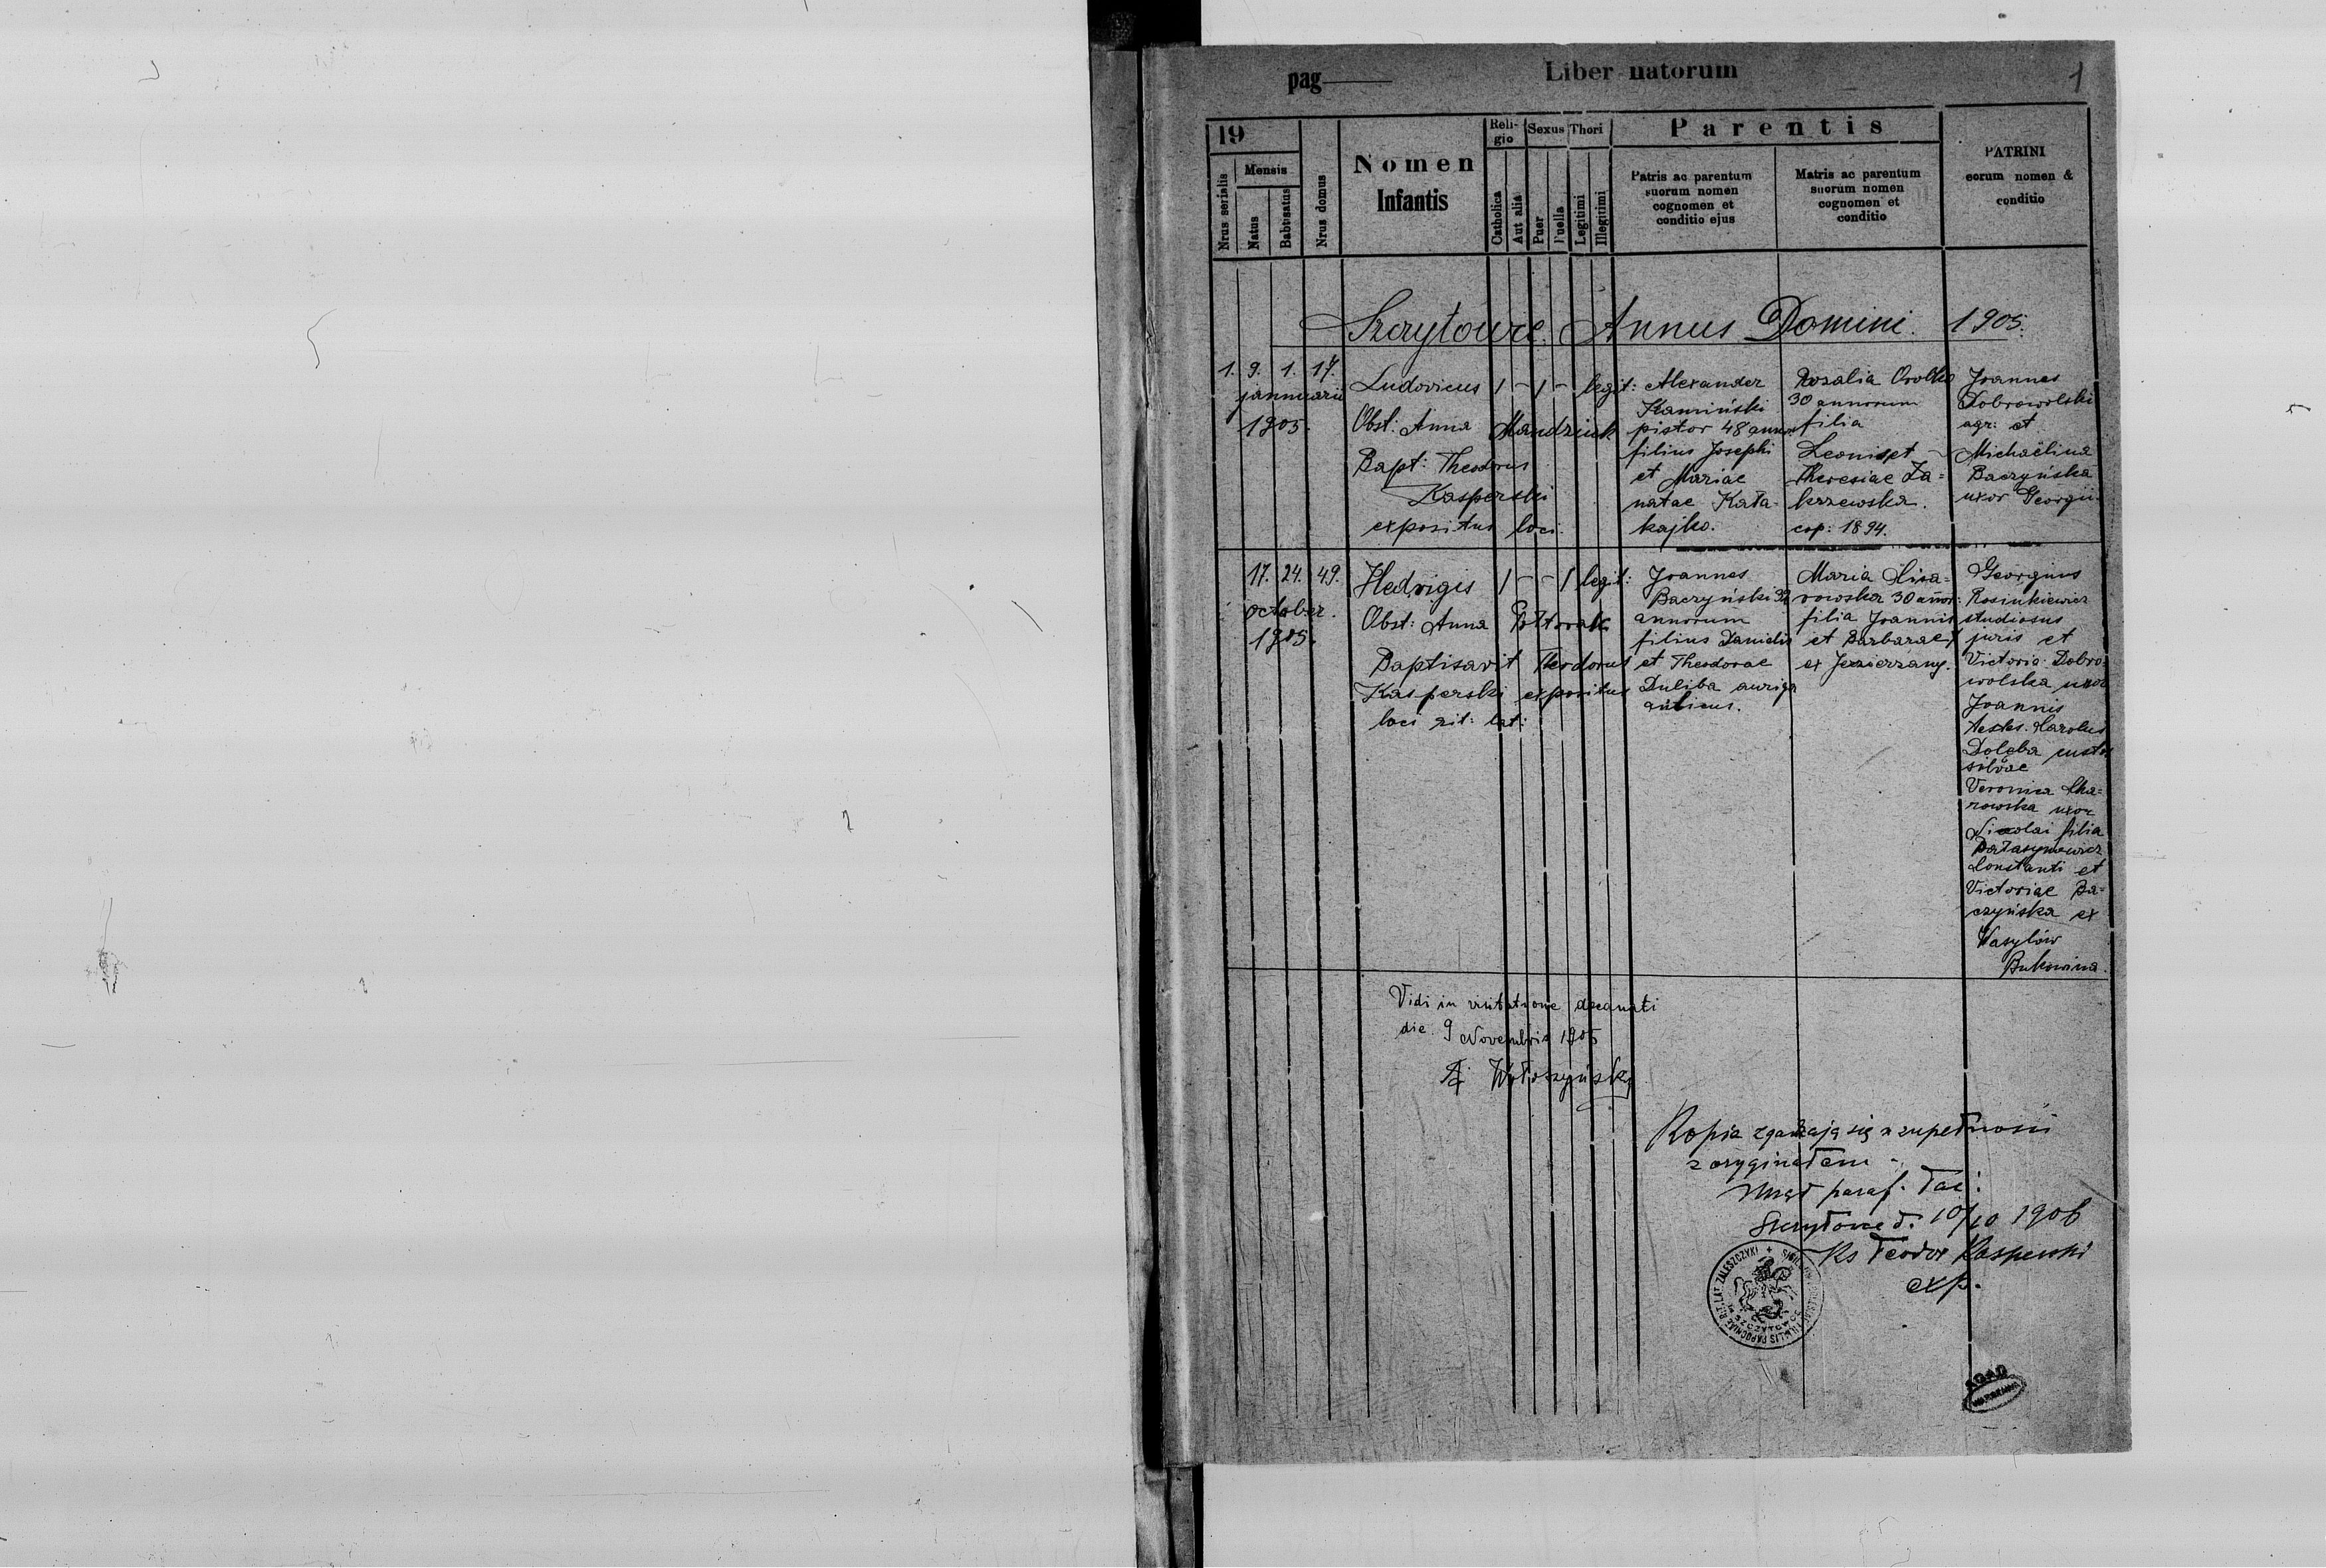 pag
Liber natorum
1
19
Mensis
Nrus serialis
Natus
Babtisatus
Nrus domus
Nomen
Infantis
Reli-
gio
Catholica
Aut alia
Sexus
Puer
Puella
Thori
Legitimi
Illegitimi
Parentis
Patris ac parentum
suorum nomen
cognomen et
conditio ejus
Matris ac parentum
suorum nomen
cognomen et
conditio
PATRINI
eorum nomen &
conditio
Szczytowce. Annus Domini. 1905.
1. 9. 1. 17.
januarii
1905.
Ludovicus 1 – 1 – legit:
Obst: Anna Mandziuk
Bapt: Theodorus
Kasperski
expositus loci.
Alexander
Kamiński
pistor 48 annor
filius Josephi
et Mariae
natae Kata-
kajko.
Rozalia
30 annorum
filia
Leonis et
Theresiae Za=
krzewska.
cop: 1894.
Joannes
Dobrowolski
agr: et
Michaëlina
Baczyńska
uxor Georgii.
17. 24. 49.
october.
1905.
Hedvigis 1 – – 1 legit:
Obst: Anna Półtorak
Baptisavit Theodorus
Kasperski expositus
loci rit: lat:
Joannes
Baczyński 32
annorum
filius Danielis
et Theodorae
Duliba auriga
aulicus.
Maria
rowska 30 annor:
filia Joannis
et Barbarae
ex Jezierzany.
Georgius
Rosinkiewicz
studiosus
juris et
Victoria Dobro=
wolska uxor
Joannis
testes. Karolus
Doleba custos
silvae
Veronica
rowska uxor
Nicolai filia
Constanti et
Victoriae Ba=
czyńska ex
Wasylów
Bukowina.
Vidi in visitatione decanati
die 9 Novembris 1905
Wołoszyński
Kopia zgadzają się w zupełności
z oryginałem
Urząd paraf. łac:
Szczytowce d. 10/10 1906
Ks Teodor Kasperski
exp.
PAROCHIAE R. T. LAT. ZALESZCZYKI +
SZCZYTOWCE
AGAD
WARSZAWA